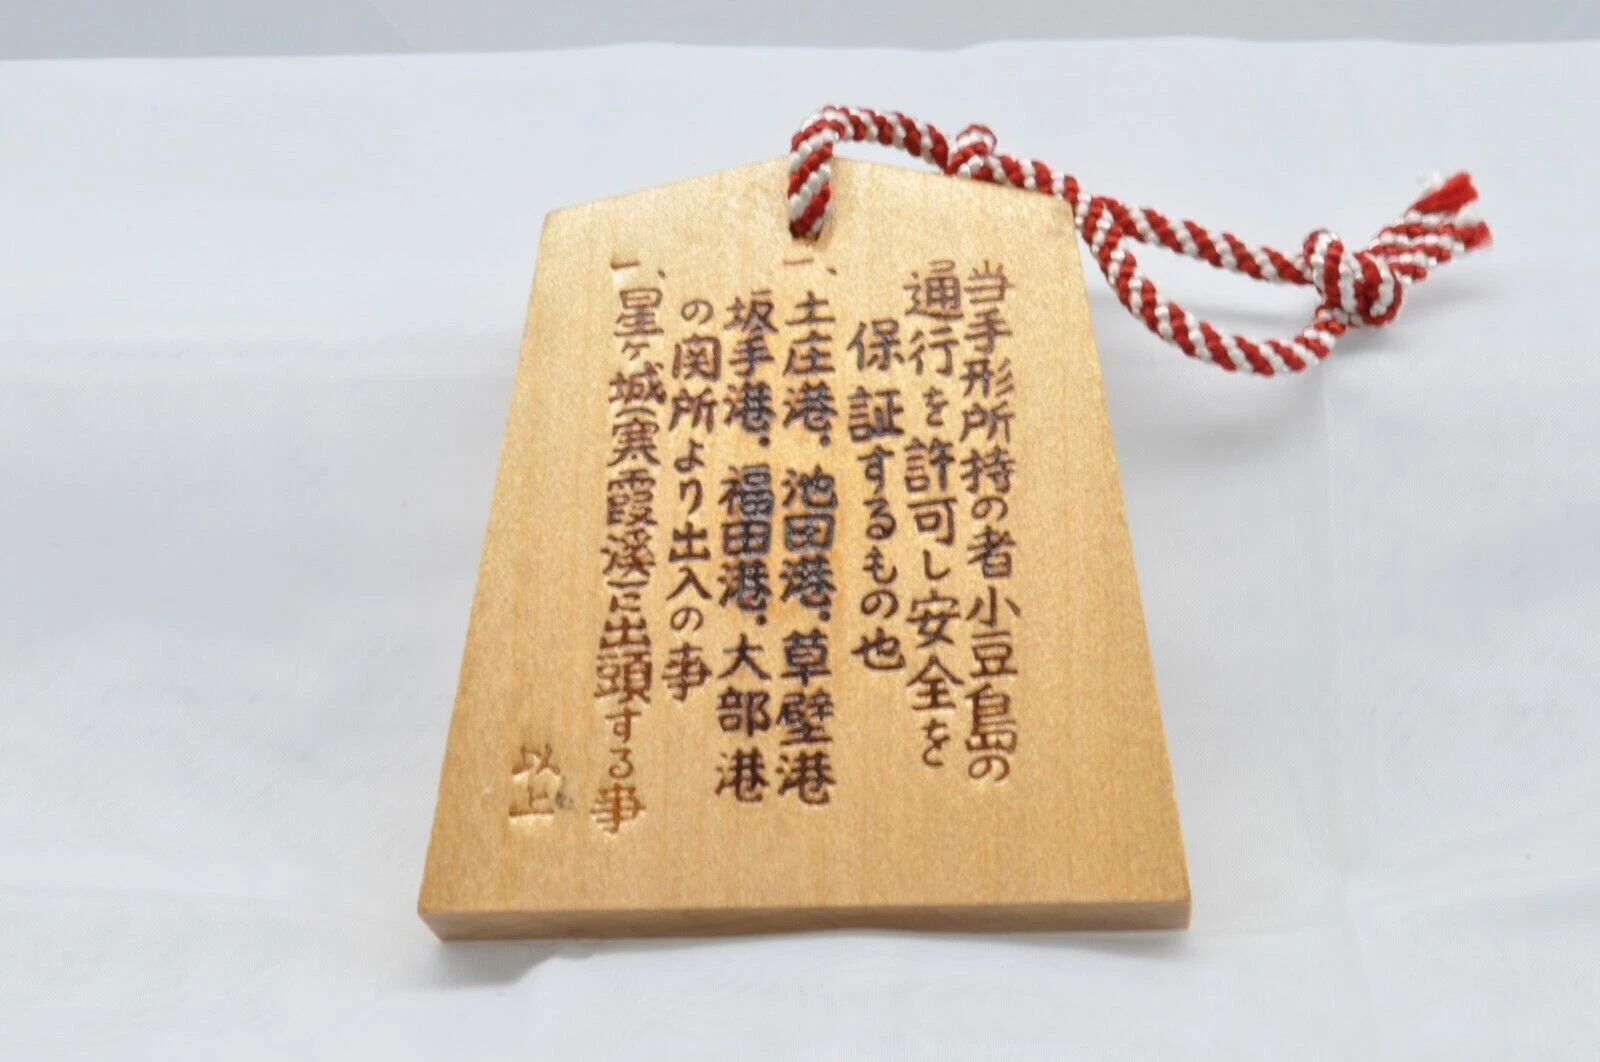 当手形所持の者小豆島の
通行を許可し安全を
保証するもの也
一、土庄港・池田港・草壁港
坂手港・福田港・大部港
の関所より出入の事
一、星ヶ城(寒霞溪)に出頭する事
以上